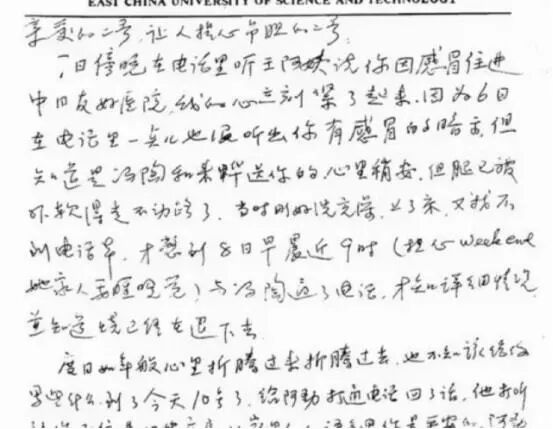 EAST CHINA UNIVERSITY OF SCIENCE AND TECHNOLOGY
亲爱的二号,让人担心吊胆的二号:
7日傍晚在电话里听王阿姨说你因感冒住进
中日友好医院,我的心立刻揪了起来。因为6日
在电话里一点儿也没听出你有感冒的暗示,但
知道是冯陶和 送你的,心里稍安,但腿已被
吓软得走不动路了。当时刚好洗完澡,上了床,又找不
到电话卡,才憋到8日早晨近9时(担心weekend
她家人要睡晚觉)与冯陶通了电话,才知详细情况,
并知道烧已经在退下去。
度日如年般心里折腾过来折腾过去,也不知该给你
写些什么,到了今天10号了,给阿勤打通电话回了话,他打听